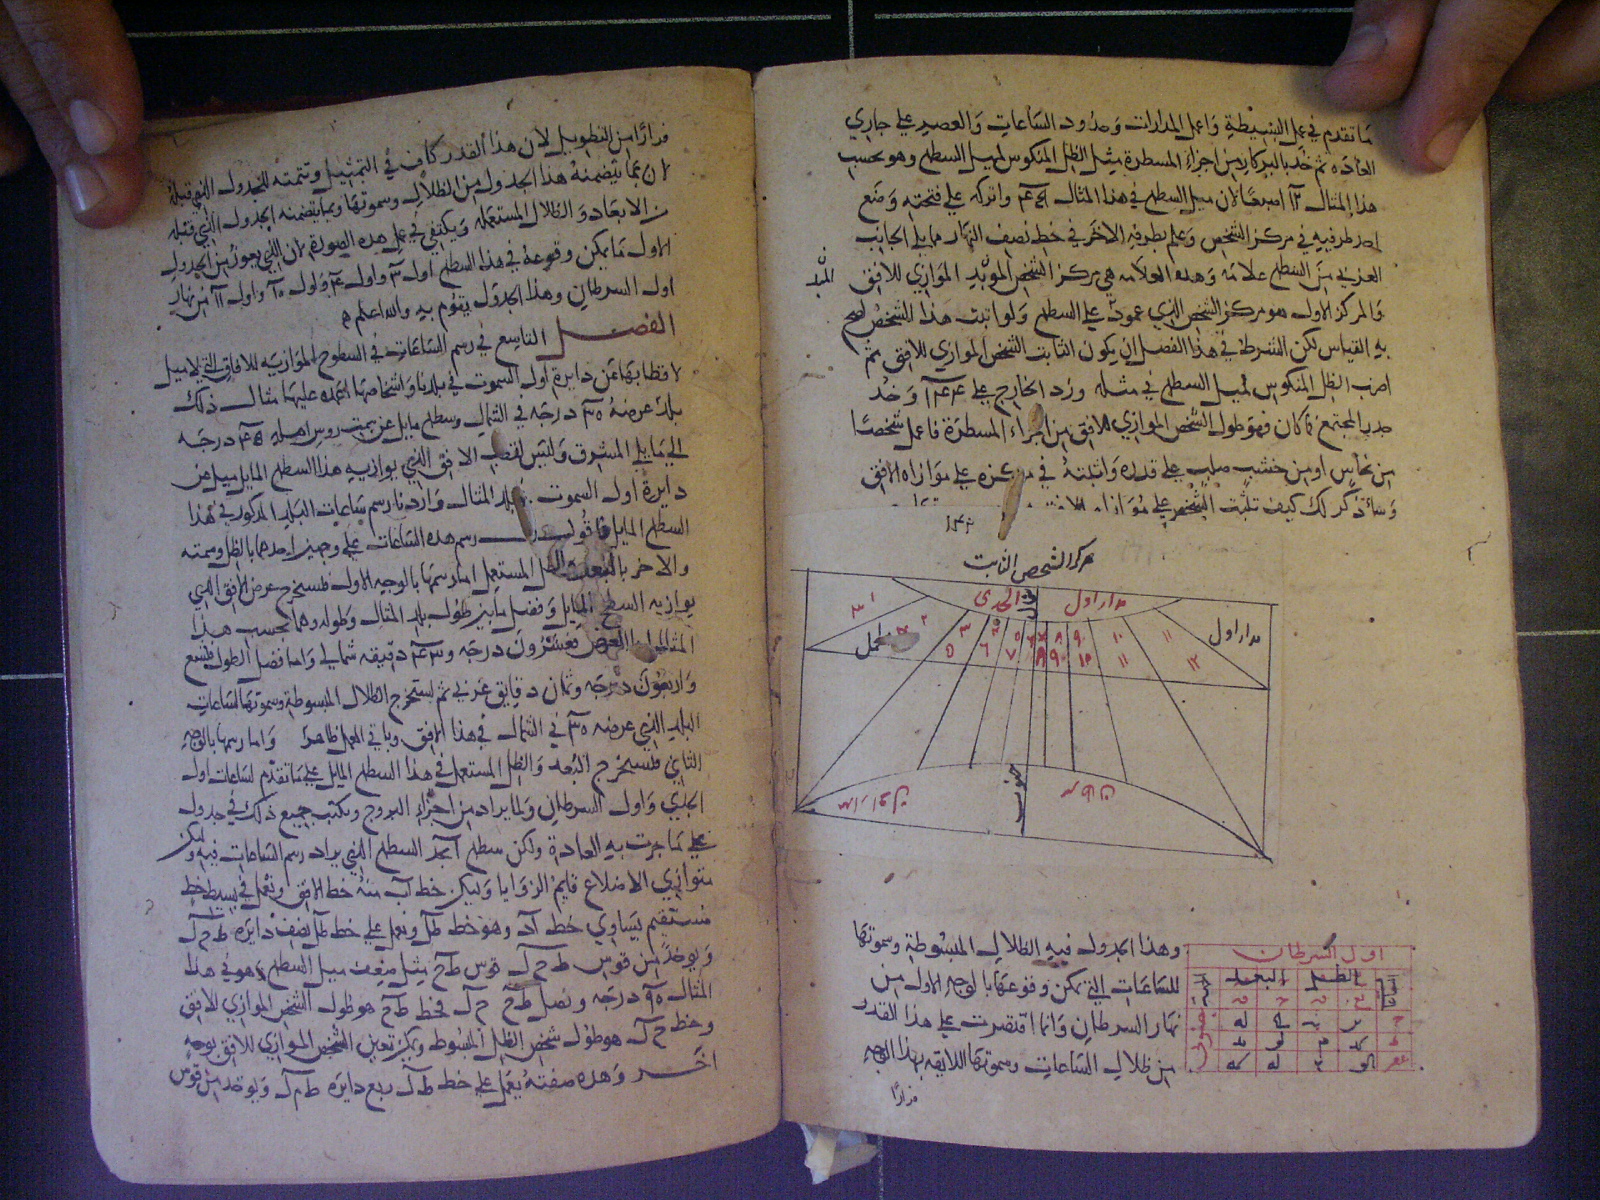 ما تقدم في عمل البسيطة واعمل المدارات وحدود الساعات والعصر علي جاري
العاده ثم خذ بالبركار من اجزاء المسطرة مثل الظل المنكوس لميل السطح وهو بحسب
هذا المثال ١٢ اصبعا لان ميل السطح في هذا المثال واتركه علي فتحته وضع
احد طرفيه في مركز الشخص وعلم بطرفه الاخر في خط نصف النهار مما يلي الجانب
من السطح علامة وهذه العلامه هي مركز الشخص الموازي للافق
والمركز الاول هو مركز الشخص الذي عمود علي السطح ولو اثبت هذا الشخص لصح
به القياس لكن الشرط في هذا الفصل ان يكون الثابت الشخص الموازي للافق ثم
اضرب الظل المنكوس لميل السطح في مثله وزد الخارج علي وخذ
جدر المجتمع فما كان فهو طول الشخص الموازي للافق من اجزاء المسطرة فاعمل شخصا
من نحاس او من خشب صلب علي قدره واثبته في مركزه علي موازاة الافق
وساذكر لك كيف تثبت الشخص علي موازاة الافق
مركز الشخص الثابت
مدار اول الجدي
مدار اول الحمل
١ ٢ ٣ ٤ ٥ ٨ ٩ ١٠ ١١
٥ ٦ ٧ ٨ ٩ ١٠ ١١ ١٢
جنوب
وهذا الجدول فيه الظلال المبسوطة وسموتها
للساعات التي يمكن وقوعها بالوجه الاول من
نهار السرطان وانما اقتصرت علي هذا القدر
من ظلال الساعات وسموتها اللايقه بهذا الوجه
فرارا
اول السرطان
الظل البعد
فرارا من التطويل لان هذا القدر كاف في التمثيل وتتمته للجدول الذي قبله
لان ما يتضمنه هذا الجدول من الظلال وسموتها وما يتضمنه الجدول الذي قبله
من الابعاد والظلال المستعمله ويكتفي في عمل هذه الصورة لان الذي يعوز من الجدول
الاول ما يمكن وقوعه في هذا السطح اول ٣ واول ٤ واول ١٠ واول ١١ من نهار
اول السرطان وهذا الجدول يقوم به والله اعلم
الفصل التاسع في رسم الساعات في السطوح الموازيه للافاق التي لا ميل
لاقطابها عن دايرة اول السموت في بلدنا واشخاصها اعمده عليها مثال ذلك
بلد عرضه ٣٠ درجه في الشمال وسطح مايل عن سمت روس اهله ٤٥ درجه
الي ما يلي المشرق وليس لقطب الافق الذي يوازيه هذا السطح المايل ميل عن
دايرة اول السموت في بلد المثال واردنا رسم ساعات البلد المذكور في هذا
السطح المايل فاقول رسم هذه الساعات علي وجهين احدهما بالظل وسمته
والاخر بالبعد والظل المستعمل اما رسمها بالوجه الاول فنستخرج عرض الافق الذي
يوازيه السطح المايل وفضل ما بين طول بلد المثال وطوله وهما بحسب هذا
المثال اما العرض فعشرون درجه و دقيقه شمالي واما فضل الطول فتسع
واربعون درجه وثمان دقايق غربي ثم نستخرج الظلال المبسوطة وسموتها لساعات
البلد الذي عرضه ٣٠ في الشمال في هذا الافق وباقي العمل ظاهر واما رسمها بالوجه
الثاني فنستخرج البعد والظل المستعمل في هذا السطح المايل علي ما تقدم لساعات اول
الجدي واول السرطان ولما يراد من اجزاء البروج ونكتب جميع ذلك في جدول
علي ما جرت به العادة ولكن سطح ابجد السطح الذي يراد رسم الساعات فيه وليكن
متوازي الاضلاع قايم الزوايا وليكن خط اب منه خط الافق ونعمل في بسيط خط
مستقيم يساوي خط اد وهو خط طل ونعمل علي خط طل نصف دايرة ط ح ل
ويوخذ من قوس ط ح ل قوس ط ح مثل ضعف ميل السطح وهو في هذا
المثال ٩٠ درجه ونصل ط ح ح ل فخط ط ح هو طول الشخص الموازي للافق
وخط ح ل هو طول شخص الظل المبسوط ويمكن تعيين الشخص الموازي للافق بوجه
اخر وهذه صفته يعمل علي خط ط ل ربع دايره ط م ل ويوخذ من قوس